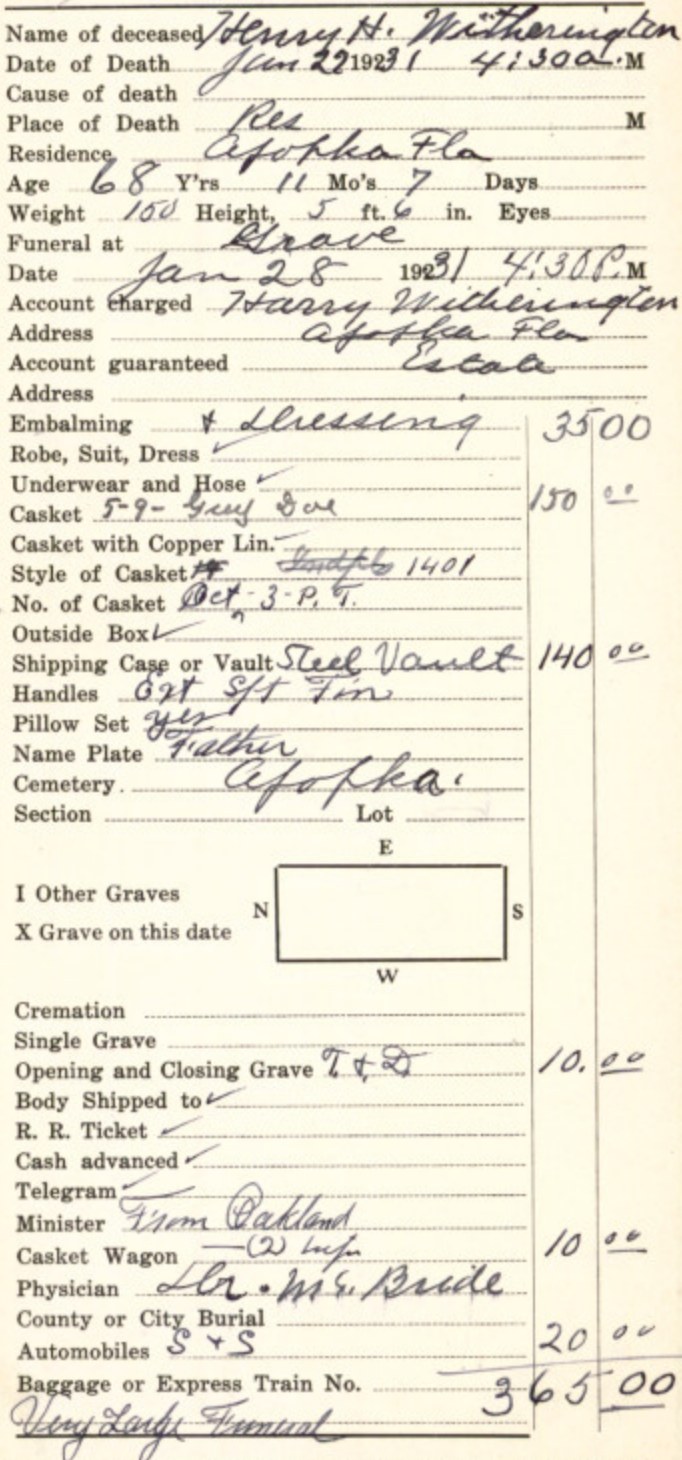 Name of deceased Henry H. Witherington
Date of Death Jan 27 19231 4:30 a. M
Cause of death
Place of Death Res M
Residence Apopka Fla
Age 68 Y'rs 11 Mo's 7 Days
Weight 150 Height, 5 ft. 6 in. Eyes
Funeral at Grave
Date Jan 28 19231 4:30 P. M
Account charged Harry Witherington
Address Apopka Fla
Account guaranteed Estate
Address
Embalming & Dressing 35 00
Robe, Suit, Dress ✓
Underwear and Hose ✓
Casket 5-9- Grey Doe 150 00
Casket with Copper Lin.
Style of Casket 1401
No. of Casket Oct - 3 - P. T.
Outside Box ✓
Shipping Case or Vault Steel Vault 140 00
Handles Ext
Pillow Set yes
Name Plate Father
Cemetery. Apopka.
Section Lot
E
I Other Graves
N S
X Grave on this date
W
Cremation
Single Grave
Opening and Closing Grave T & D 10. 00
Body Shipped to ✓
R. R. Ticket ✓
Cash advanced ✓
Telegram ✓
Minister From Oakland
Casket Wagon — (2) 10 00
Physician Dr. Mc. Bride
County or City Burial
Automobiles S + S 20 00
Baggage or Express Train No. 365 00
Very Large Funeral